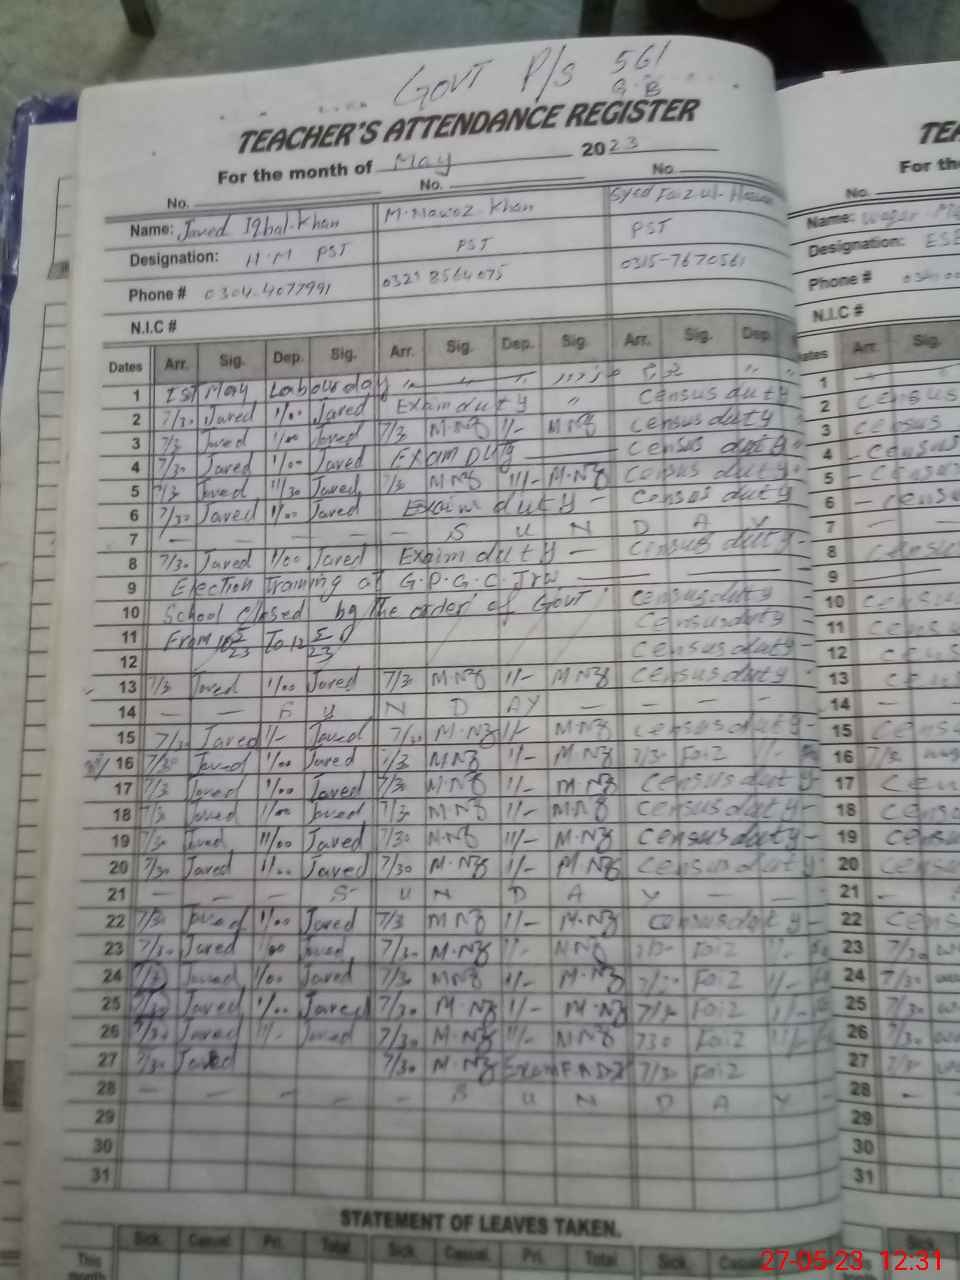 GOVT P/S 561
G.B
TEACHER'S ATTENDANCE REGISTER
For the month of May 2023
No. No. No.
Name: Javed Iqbal Khan M. Nawaz Khan Syed Faiz ul
Designation: H.M PST PST PST
Phone # 0304-4077991 0323 8564075 0315-7670561
N.I.C #
Dates Arr. Sig. Dep. Sig. Arr. Sig. Dep. Sig. Arr. Sig. Dep.
1 Ist May Labour day
2 7/30 Javed 1/00 Javed Exam duty " Census duty
3 7/3 Javed 1/00 Javed 7/3 M-NZ 1/- MNZ Census duty
4 7/30 Javed 1/00 Javed EXAM DUTY Census duty
5 7/3 Javed 11/30 Javed 7/3 MNZ 11/- M-NZ Census duty
6 7/30 Javed 1/00 Javed Exaim duty - Census duty
7 - - - - - S U N D A Y
8 7/30 Javed 1/00 Javed Exaim duty - Census duty -
9 Election Training at G.P.G.C. Jrw
10 School closed by the order of Govt Census duty
11 From To 12 5/23 Census duty
12 Census duty -
13 7/3 Javed 1/00 Javed 7/3 M-NZ 1/- M-NZ Census duty
14 - - N D AY - - - -
15 7/30 Javed 1/- Javed 7/30 M-NZ 1/- MNZ Census duty -
16 7/30 Javed 1/00 Javed 7/3 MNZ 1/- M-NZ 7/30 Faiz
17 7/3 Javed 1/00 Javed 7/3 M-NZ 1/- M-NZ Census duty -
18 7/3 Javed 1/00 Javed 7/3 M-NZ 1/- MNZ Census duty -
19 7/3 Javed 11/00 Javed 7/30 M-NZ 11/- M-NZ Census duty -
20 7/30 Javed 1/00 Javed 7/30 M-NZ 1/- M-NZ Census duty
21 - - - S U N D A Y -
22 7/30 Javed 1/00 Javed 7/3 MNZ 1/- M-NZ Census duty -
23 7/30 Javed 1/00 Javed 7/30 M-NZ 1/- MNZ Faiz
24 7/3 Javed 1/00 Javed 7/30 MNZ 1/- M-NZ 7/30 Faiz 1/-
25 Javed 1/00 Javed 7/30 M-NZ 1/- M-NZ Faiz 1/-
26 7/30 Javed 1/- Javed 7/30 M-NZ 11/- MNZ 730 Faiz
27 7/30 Javed 7/30 M-NZ Exam 7/30 Faiz
28 - - - - - S U N D A Y -
29
30
31
STATEMENT OF LEAVES TAKEN.
Sick. Casual. Pri. Total Sick. Casual. Pri. Total Sick.
This
month
TEA
For the
No.
Name: Waqar
Designation: ESE
Phone #
N.I.C #
Arr. Sig.
1
2 Census
3 Census
4 Census
5 Census
6 Census
7 - -
8 Census
9 -
10 Census
11 Census
12 Census
13
14 - -
15 Cens
16 7/3
17 Cen
18 Cens
19 Censu
20 Censu
21 -
22 Cens
23 7/30
24 7/30
25 7/30
26 7/30
27
28 -
29
30
31
Sick
27-05-23 12:31